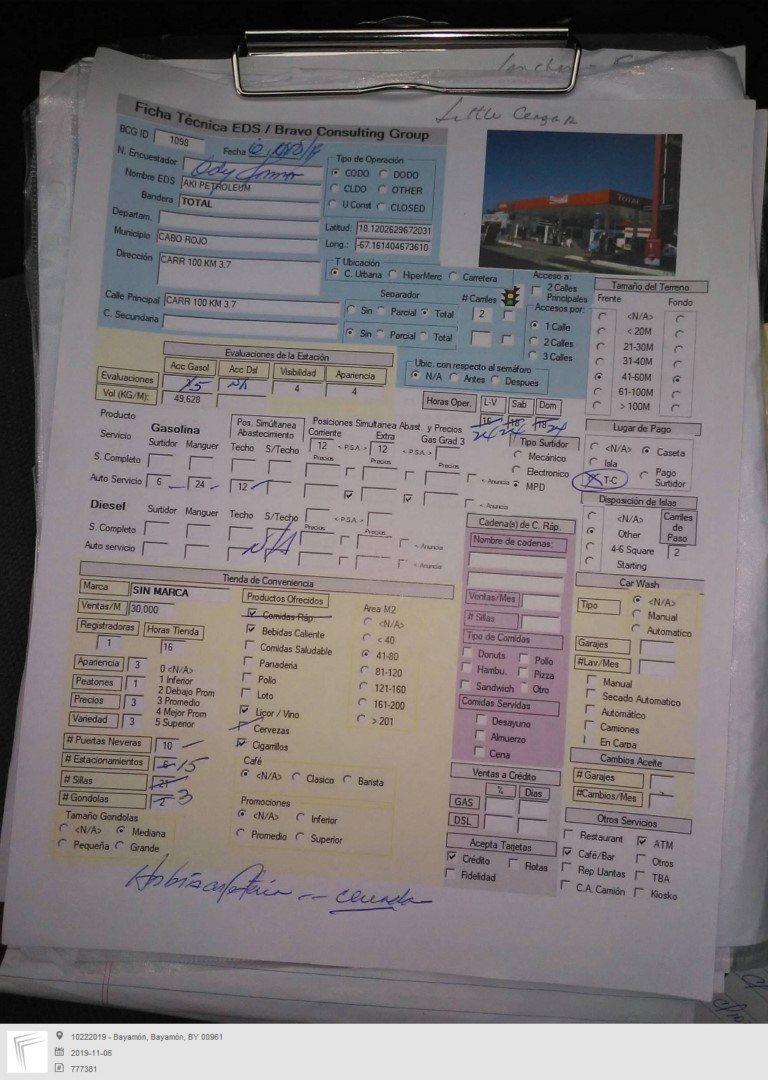 Little Ceasar
Ficha Técnica EDS / Bravo Consulting Group
BCG ID 1098 Fecha
N. Encuestador
Nombre EDS AKI PETROLEUM
Bandera TOTAL
Departam.
Municipio CABO ROJO
Dirección CARR 100 KM 3.7
Calle Principal CARR 100 KM 3.7
C. Secundaria
Tipo de Operación
CODO DODO
CLDO OTHER
U Const CLOSED
Latitud: 18.1202629672031
Long.: -67.161404673610
T Ubicación
C. Urbana HiperMerc Carretera
Separador # Carriles
Sin Parcial Total 2
Sin Parcial Total
Acceso a:
2 Calles
Principales
Accesos por:
1 Calle
2 Calles
3 Calles
Ubic. con respecto al semáforo
N/A Antes Despues
TOTAL
Tamaño del Terreno
Frente Fondo
<N/A>
< 20M
21-30M
31-40M
41-60M
61-100M
> 100M
Evaluaciones de la Estación
Acc Gasol Acc Dsl Visibilidad Apariencia
Evaluaciones 4 4
Vol (KG/M): 49,628
Horas Oper. L-V Sab Dom
Producto Gasolina
Servicio Surtidor Manguer
Pos. Simultánea
Abastecimiento
Techo S/Techo
Posiciones Simultanea Abast. y Precios
Corriente Extra Gas Grad 3
12 < P.S.A.> 12 < P.S.A.>
Precios Precios Precios
S. Completo
Auto Servicio 6 24 12
< Anuncia
< Anuncia
Tipo Surtidor
Mecánico
Electronico
MPD
Lugar de Pago
<N/A> Caseta
Isla
T-C Pago
Surtidor
Diesel Surtidor Manguer Techo S/Techo
< P.S.A.>
Precios Precios
S. Completo < Anuncia
Auto servicio N/A < Anuncia
Disposición de Islas
<N/A>
Other
4-6 Square
Starting
Carriles
de
Paso
2
Tienda de Conveniencia
Marca SIN MARCA
Ventas/M 30,000
Registradoras Horas Tienda
1 16
Apariencia 3
Peatones 1
Precios 3
Variedad 3
0 <N/A>
1 Inferior
2 Debajo Prom
3 Promedio
4 Mejor Prom
5 Superior
# Puertas Neveras 10
# Estacionamientos 15
# Sillas 21
# Gondolas 3
Tamaño Gondolas
<N/A> Mediana
Pequeña Grande
Productos Ofrecidos
Comidas Ráp.
Bebidas Caliente
Comidas Saludable
Panaderia
Pollo
Loto
Licor / Vino
Cervezas
Cigarillos
Area M2
<N/A>
< 40
41-80
81-120
121-160
161-200
> 201
Café
<N/A> Clasico Barista
Promociones
<N/A> Inferior
Promedio Superior
Cadena(s) de C. Ráp.
Nombre de cadenas:
Ventas/Mes
# Sillas
Tipo de Comidas
Donuts Pollo
Hambu. Pizza
Sandwich Otro
Comidas Servidas
Desayuno
Almuerzo
Cena
Ventas a Crédito
% Dias
GAS
DSL
Acepta Tarjetas
Crédito Flotas
Fidelidad
Car Wash
Tipo <N/A>
Manual
Automatico
Garajes
#Lav/Mes
Manual
Secado Automatico
Automático
Camiones
En Carpa
Cambios Aceite
# Garajes
#Cambios/Mes
Otros Servicios
Restaurant ATM
Café/Bar Otros
Rep Llantas TBA
C.A. Camión Kiosko
cerrada
10222019 - Bayamón, Bayamón, BY 00961
2019-11-06
777381